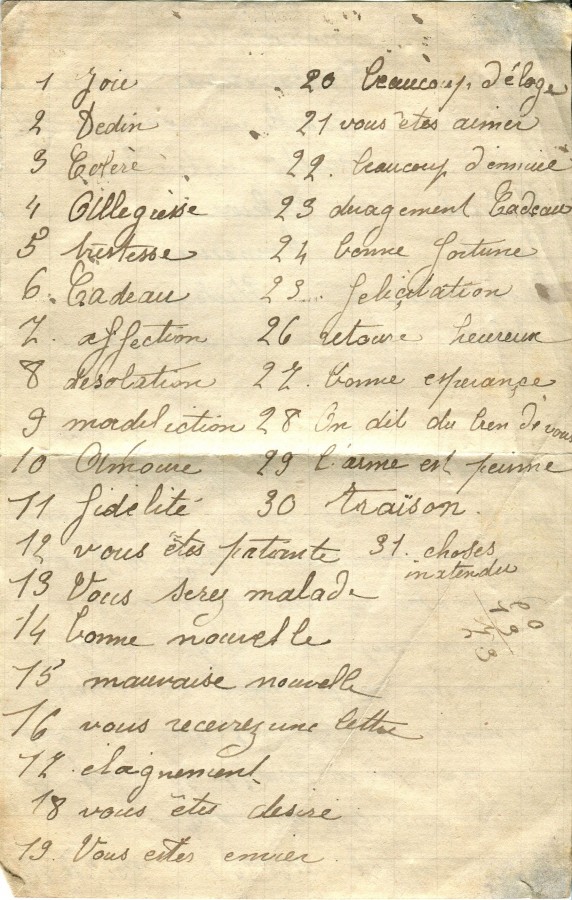 1 Joie
2 Dedin
3 Colère
4 Allegresse
5 tristesse
6. Cadeau
7. affection
8 desolation
9 madeliction
10 Amoure
11 fidélité
12 vous êtes patiente
13 Vous serez malade
14 bonne nouvelle
15 mauvaise nouvelle
16 vous recevrez une lettre
17 élaignement
18 vous êtes desiré
19. Vous estes envier.
20 beaucoup d'éloge
21 vous êtes aimer
22. beaucoup d'ennuie
23 Cadeau
24 bonne fortune
23. feliçitation
26 retoure heureux
27. bonne esperançe
28 On dit du bien de vous
29 l'arme est peinne
30 traïson.
31. choses
inxtendu